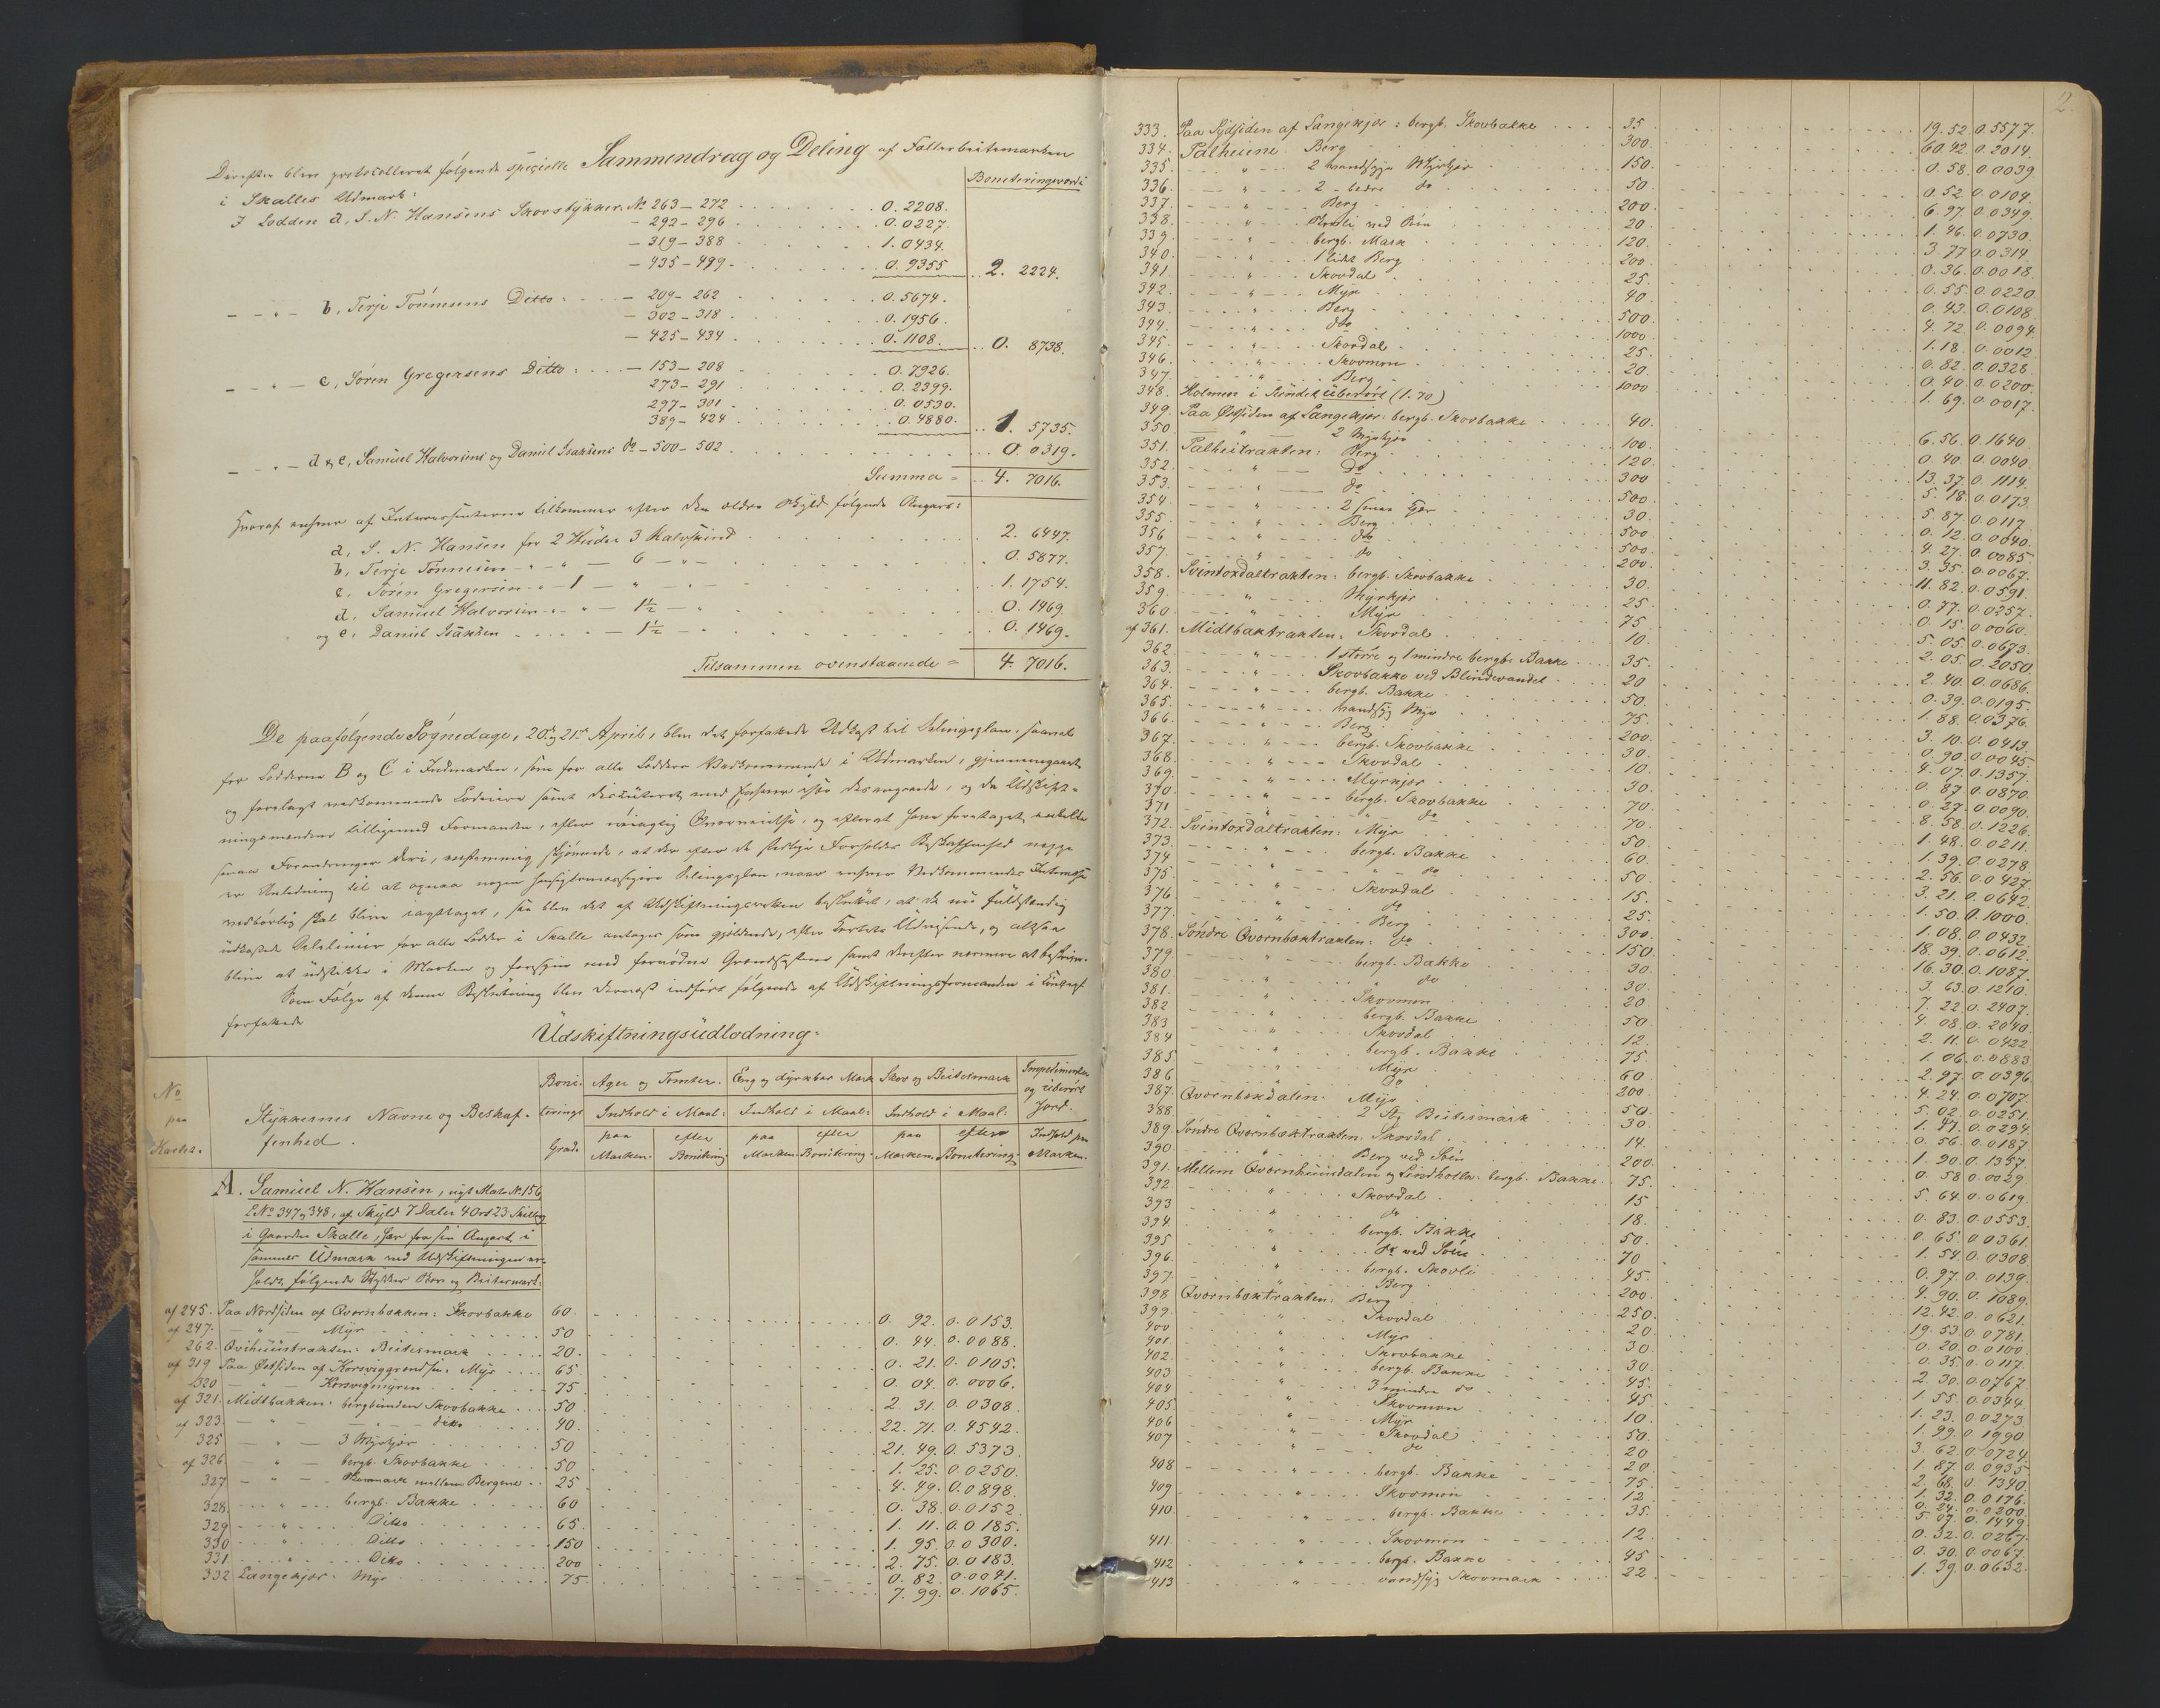 Derefter blev protocolleret følgende specielle Sammendrag og Deling af Fællesbeitesmarken
i Skalles Udmark: Boniteringsværdi
I Lodden a, S. N. Hansens Skovstykker: No 263 – 272 0. 2208.
– 292 – 296 0. 0227.
– 319 – 388 1. 0434.
– 435 – 499 0. 9355 2. 2224.
– " – b, Terje Tønnesens Ditto: – 209 – 262 0. 5674.
– 302 – 318 0. 1956.
– 425 – 434 0. 1108. 0. 8738.
– " – c, Søren Gregersens Ditto: – 153 – 208 0. 7926.
273 – 291 0. 2399.
297 – 301 0. 0530.
389 – 424 0. 4880. 1. 5735.
– " – d & e, Samuel Halvorsens og Daniel Isaksens do – 500 – 502 0. 0319.
Summa = 4. 7016.
Hvoraf enhver af Interessenterne tilkommer efter den ældre Skyld følgende Anpart:
a, S. N. Hansen for 2 Huder 3 Kalvskind 2. 6447.
b, Terje Tønnesen – " – " – 6 – " – 0. 5877.
c, Søren Gregersen – " 1 – " 1. 1754.
d, Samuel Halvorsen – " – " – 1½ – " 0. 1469.
og e, Daniel Isaksen – 1½ – " 0. 1469.
Tilsammen ovenstaaende = 4. 7016.
De paafølgende Søgnedage, 20de og 21de April, blev det forfattede Udkast til Delingsplan, saavel
for Lodderne B og C i Indmarken, som for alle Lodders Vedkommende i Udmarken, gjennemgaaet
og forelagt vedkommende Lodeiere samt discuteret med Enhver især desangaaende, og da Udskift-
ningsmændene tilligemed Formanden, efter nøiagtig Overveielse, og efterat have foretaget enkelte
smaa Forandringer deri, eenstemmig skjønnede, at der efter de stedlige Forholdes Beskaffenhed neppe
er Anledning til at opnaa nogen hensigtsmæssigere Delingsplan, naar enhver Vedkommendes Interesse
nødvendig skal blive iagttaget, saa blev det af Udskiftningsretten besluttet, at de nu fuldstændig
udkastede Delelinier for alle Lodder i Skalle antages som gjældende, efter Kartets Udvisende, og altsaa
blive at udstikke i Marken og forsyne med fornødne Grændsestene samt derefter nærmere at beskrive.
Som Følge af denne Beslutning blev dernæst indført følgende af Udskiftningsformanden i Udkast
forfattede
Udskiftningsudlodning:
No paa Kartet. Stykkernes Navne og Beskaffenhed. Boniterings Grad. Ager og Tomter. Eng og dyrkbar Mark Skov og Beitesmark Impedimenter og uberørt Jord.
Indhold i Maal: Indhold i Maal: Indhold i Maal:
paa Marken. efter Bonitering. paa Marken. efter Bonitering. paa Marken. efter Bonitering. Indhold paa Marken.
A. Samuel N. Hansen, eier Matr. No 156
L No 347 og 348, af Skyld 7 Daler 4 Ort 23 Skilling
i Gaarden Skalle, har for sin Anpart i
sammes Udmark ved Udskiftningen er-
holdt følgende Stykker Skov og Beitesmark:
af 245. Paa Nordsiden af Qvernbækken: Skovbakke 60. 0. 92. 0. 0153.
af 247. – " – Myr 50 0. 44. 0. 0088.
262. Qvihuustrakten: Beitesmark 20. 0. 21. 0. 0105.
af 319 Paa Østsiden af Korsviggrendsen: Myr 65 0. 04. 0. 0006.
320 – " – Korsvigmyren 75 2. 31. 0. 0308.
af 321. Midtbakken: bergbunden Skovbakke 50 22. 71. 0. 4542.
af 323. – " – ditto 40. 21. 49. 0. 5373.
325 – " – 3 Myrkjær 50 1. 25. 0. 0250.
af 326 – " – bergb. Skovbakke 50 4. 49. 0. 0898.
327 – " – Skovmark mellem Bergene 25 0. 38. 0. 0152.
328. – " – bergb. Bakke 60 1. 11. 0. 0185.
329 – " – Ditto 65. 1. 95. 0. 0300.
330 – " – Ditto 150 2. 75. 0. 0183.
331. – " – Ditto 200 0. 82. 0. 0041.
332 Langekjær: Myr 75. 7. 99. 0. 1065.
2.
333. Paa Sydsiden af Langekjær: bergb. Skovbakke 35. 19. 52. 0. 5577.
334. Palheiene Berg 300. 60. 42. 0. 2014.
335. " 2 vandsyge Myrkjær 150. 0. 58. 0. 0039
336. " 2 – bedre do 50. 0. 52. 0. 0104.
337. " Berg 200. 6. 97. 0. 0349.
338. " 20 1. 46. 0. 0730.
339. " bergb. Mark 120. 3. 77 0. 0314.
340. " 1 lidet Berg 200. 0. 36. 0. 0018.
341. " Skovdal 25. 0. 55. 0. 0220.
342. " Myr 40. 0. 43. 0. 0108.
343. " Berg 500. 4. 72. 0. 0094.
344. " do 1000. 1. 18. 0. 0012
345. " Skovdal 25. 0. 82. 0. 0328.
346. " Skovmon 20. 0. 40. 0. 0200.
347. " Berg 1000 1. 69. 0. 0017.
348. Holmen i Sundet uberørt (1. 70)
349. Paa Østsiden af Langekjær: bergb. Skovbakke 40. 6. 56. 0. 1640.
350 " 2 Myrkjær 100. 0. 40. 0. 0040.
351. Palheitrakten: Berg 120. 13. 37. 0. 1114.
352. " do 300 5. 18. 0. 0173.
353. " do 500. 5. 87. 0. 0117.
354. " 2 smaa Kjær 30. 0. 12. 0. 0040.
355. " Berg 500. 4. 27. 0. 0085.
356 " do 500. 3. 35. 0. 0067.
357. " do 200. 11. 82. 0. 0591.
358. Svintoxdaltrakten: bergb. Skovbakke 30. 0. 77. 0. 0257.
359. " Myrkjær 25. 0. 15. 0. 0060.
360. " Myr 75 5. 05. 0. 0673.
af 361. Midtbaktrakten: Skovdal 10. 2. 05. 0. 2050
362 " 1 større og 1 mindre bergb. Bakke 35. 2. 40. 0. 0686.
363. " Skovbakke ved Blindevandet 20 0. 39. 0. 0195.
364. " bergb. Bakke 50. 1. 88. 0. 0376.
365. " vandsyg Myr 75. 3. 10. 0. 0413.
366. " Berg 200. 0. 90. 0. 0045.
367. " bergb. Skovbakke 30. 4. 07. 0. 1357.
368. " Skovdal 10. 0. 87. 0. 0870.
369. " Myrkjær 30. 0. 27. 0. 0090.
370. " bergb. Skovbakke 70. 8. 58. 0. 1226.
371 " do 70. 1. 48. 0. 0211.
372. Svintoxdaltrakten: Myr 50. 1. 39. 0. 0278.
373. " bergb. Bakke 60. 2. 56. 0. 0427.
374 " do 50. 3. 21. 0. 0642.
375. " Skovdal 15. 1. 50. 0. 1000.
376. " do 25. 1. 08. 0. 0432.
377. " Berg 300. 18. 39. 0. 0612.
378. Søndre Qvernbæktrakten: do 150. 16. 30. 0. 1087.
379. " bergb. Bakke 30. 3. 63. 0. 1210.
380. " do 30. 7. 22. 0. 2407.
381. " Skovmon 20. 4. 08. 0. 2040.
382 " bergb. Bakke 50. 2. 11. 0. 0422.
383 " Skovdal 12. 1. 06. 0. 0883
384 " bergb. Bakke 75 2. 97. 0. 0396.
385 " Myr 60. 4. 24. 0. 0707.
386 " do 200 5. 02. 0. 0251.
387. Qvernbækdalen: Myr 50. 1. 47. 0. 0294.
388. " 2 St. Beitesmark 30. 0. 56. 0. 0187.
389. Søndre Qvernbæktrakten. Skovdal 14. 1. 90. 0. 1357.
390 " Berg ved Søen 200. 0. 58 0. 0029.
391. Mellem Qvernhuusdalen og Lindholta. bergb. Bakke 75. 5. 64. 0. 0619.
392 " Skovdal 15 0. 83. 0. 0553.
393 " do 18. 0. 65. 0. 0361.
394. " bergb. Bakke 50. 1. 54. 0. 0308.
395 " do ved Søen 70 0. 97. 0. 0139.
396. " bergb. Skovli 45. 4. 90. 0. 1089.
397. " Berg 200 12. 42. 0. 0621.
398 Qvernbæktrakten: Berg 250. 19. 53. 0. 0781.
399. " Skovdal 20. 0. 20. 0. 0100.
400 " Myr 30. 0. 35. 0. 0117.
401. " Skovbakke 30. 2. 30. 0. 0767
402. " bergb. Bakke 45. 1. 55. 0. 0344.
403 " 3 mindre do 45 1. 23. 0. 0273.
404 " Skovmon 10. 1. 99. 0. 1990.
405 " Myr 50. 3. 62. 0. 0724.
406 " Skovdal 20 1. 87. 0. 0935
407 " do 20. 2. 68. 0. 1340
408 " bergb. Bakke 75. 1. 32. 0. 0176.
409 " Skovmon 12. 0. 24. 0. 0200.
410. " bergb. Bakke 35. 5. 07. 0. 1449.
411. " Skovmon 12. 0. 32. 0. 0267.
412 " bergb. Bakke 45 0. 30. 0. 0067.
413 " vandsyg Skovmark 22. 1. 39. 0. 0632.